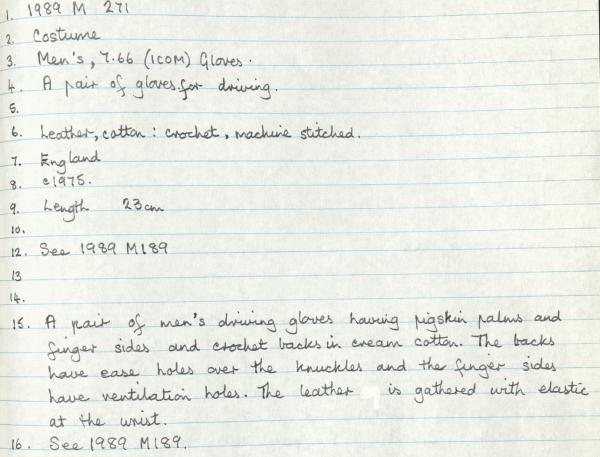 1. 1989 M 271
2. Costume
3. Men's, 7.66 (ICOM) Gloves.
4. A pair of gloves for driving.
5.
6. Leather, cotton : crochet, machine stitched.
7. England
8. c1975.
9. Length 23cm
10.
12. See 1989 M189
13
14.
15. A pair of men's driving gloves having pigskin palms and
finger sides and crochet backs in cream cotton. The backs
have ease holes over the knuckles and the finger sides
have ventilation holes. The leather is gathered with elastic
at the wrist.
16. See 1989 M189.